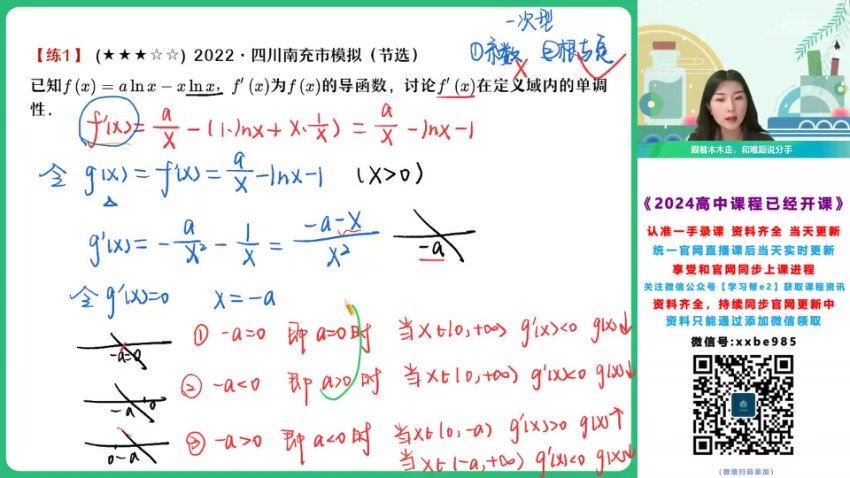 一次型
①系数 ②根与定
【练1】(★★★☆☆) 2022·四川南充市模拟（节选）
已知f(x)=a ln x−x ln x，f′(x)为f(x)的导函数，讨论f′(x)在定义域内的单调
性.
f'(x)= a/x −(1·lnx+x·1/x) = a/x −lnx−1
令 g(x)=f'(x)= a/x −lnx−1 (x>0)
g'(x)= −a/x² − 1/x = (−a−x)/x²
−a
令g'(x)=0 x=−a
−a=0 ① −a=0 即 a=0时 当x∈(0,+∞) g'(x)<0 g(x)↓
−a 0 ② −a<0 即 a>0时 当x∈(0,+∞) g'(x)<0 g(x)↓
0 −a ③ −a>0 即 a<0时 当x∈(0,−a) g'(x)>0 g(x)↑
当x∈(−a,+∞) g'(x)<0 g(x)↓
跟着木木走，和难题说分手
《2024高中课程已经开课》
认准一手录课 资料齐全 当天更新
统一官网直播课后当天实时更新
享受和官网同步上课进程
关注微信公众号【学习帮e2】获取课程资讯
资料齐全，持续同步官网更新中
资料只能通过添加微信领取
微信号:xxbe985
（微信扫码添加）